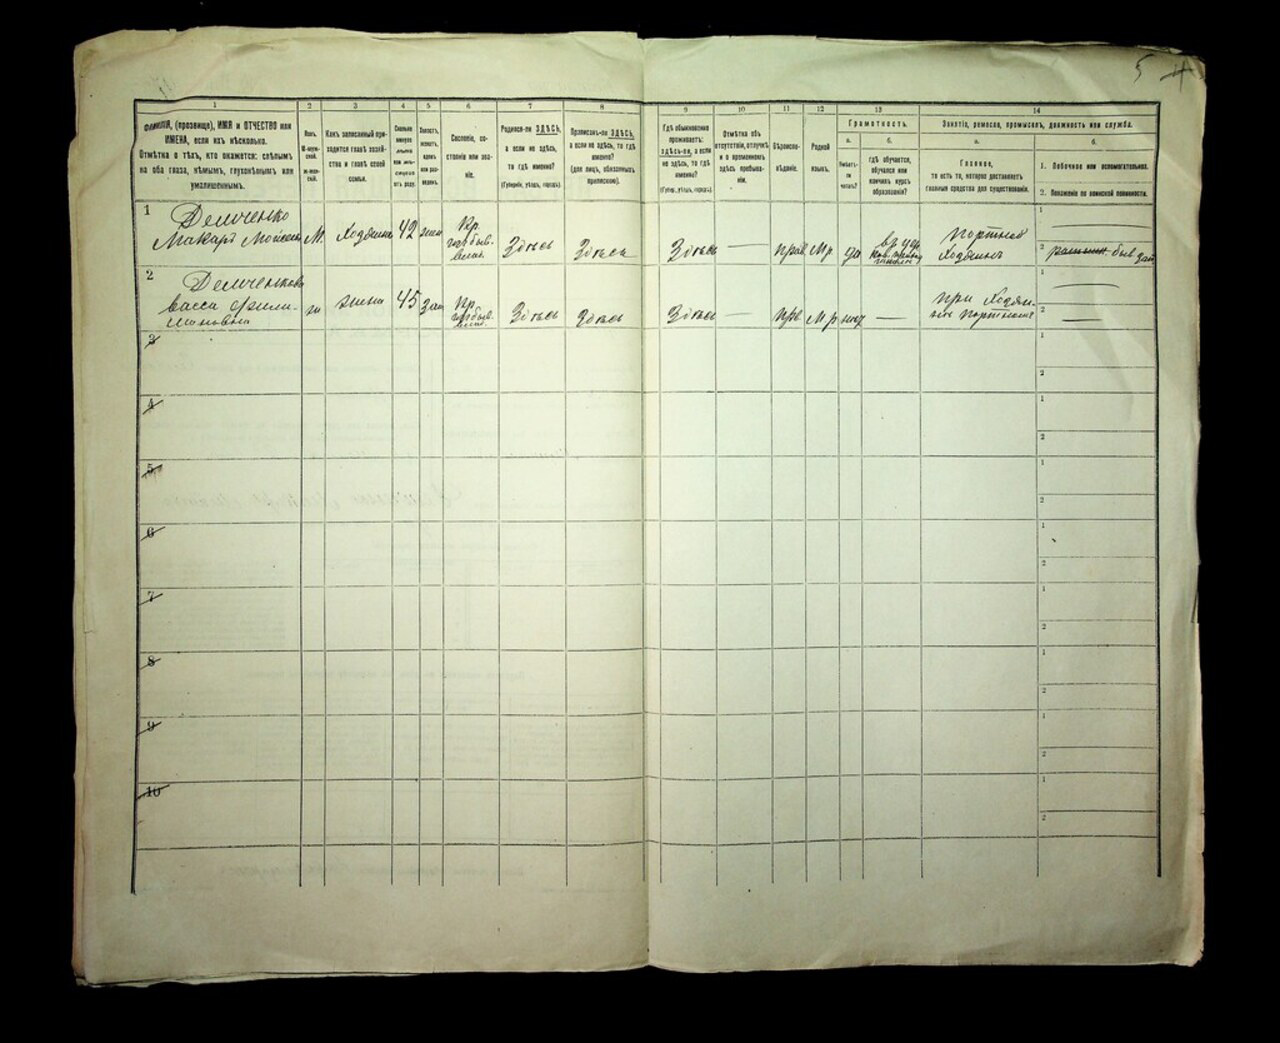 5
1
2
3
4
5
6
7
8
9
10
11
12
13
14
ФАМИЛІЯ, (прозвище), ИМЯ и ОТЧЕСТВО или
ИМЕНА, если ихъ нѣсколько.
Отмѣтка о тѣхъ, кто окажется: слѣпымъ
на оба глаза, нѣмымъ, глухонѣмымъ или
умалишеннымъ.
Полъ.
М-муж-
ской.
Ж-жен-
скій.
Какъ записанный при-
ходится главѣ хозяй-
ства и главѣ своей
семьи.
Сколько
минуло
лѣтъ
или мѣ-
сяцевъ
отъ роду.
Холостъ,
женатъ,
вдовъ
или раз-
веденъ.
Сословіе, со-
стояніе или зва-
ніе.
Родился-ли ЗДѢСЬ,
а если не здѣсь,
то гдѣ именно?
(Губернія, уѣздъ, городъ).
Приписанъ-ли ЗДѢСЬ,
а если не здѣсь, то гдѣ
именно?
(для лицъ, обязанныхъ
припискою).
Гдѣ обыкновенно
проживаетъ:
здѣсь-ли, а если
не здѣсь, то гдѣ
именно?
(Губер., уѣздъ, городъ).
Отмѣтка объ
отсутствіи, отлучкѣ
и о временномъ
здѣсь пребыва-
ніи.
Вѣроиспо-
вѣданіе.
Родной
языкъ.
Грамотность.
а.
Умѣетъ-
ли
читать?
б.
гдѣ обучается,
обучался или
кончилъ курсъ
образованія?
Занятіе, ремесло, промыселъ, должность или служба.
а.
Главное,
то есть то, которое доставляетъ
главныя средства для существованія.
б.
1. Побочное или вспомогательное.
2. Положеніе по воинской повинности.
1
Демченко
Макаръ Моисеевъ
М.
Хозяинъ
42
жен
Кр.
Здѣсь
Здѣсь
Здѣсь
—
прав
Мр.
да
Портной
Хозяинъ
1
2
быв
2
Демченкова
Васса Фили-
моновна
ж
жена
45
зам
Кр.
Здѣсь
Здѣсь
Здѣсь
—
прв
Мр
нѣт
—
при Хозяи-
не портном
1
2
3
1
2
4
1
2
5
1
2
6
1
2
7
1
2
8
1
2
9
1
2
10
1
2